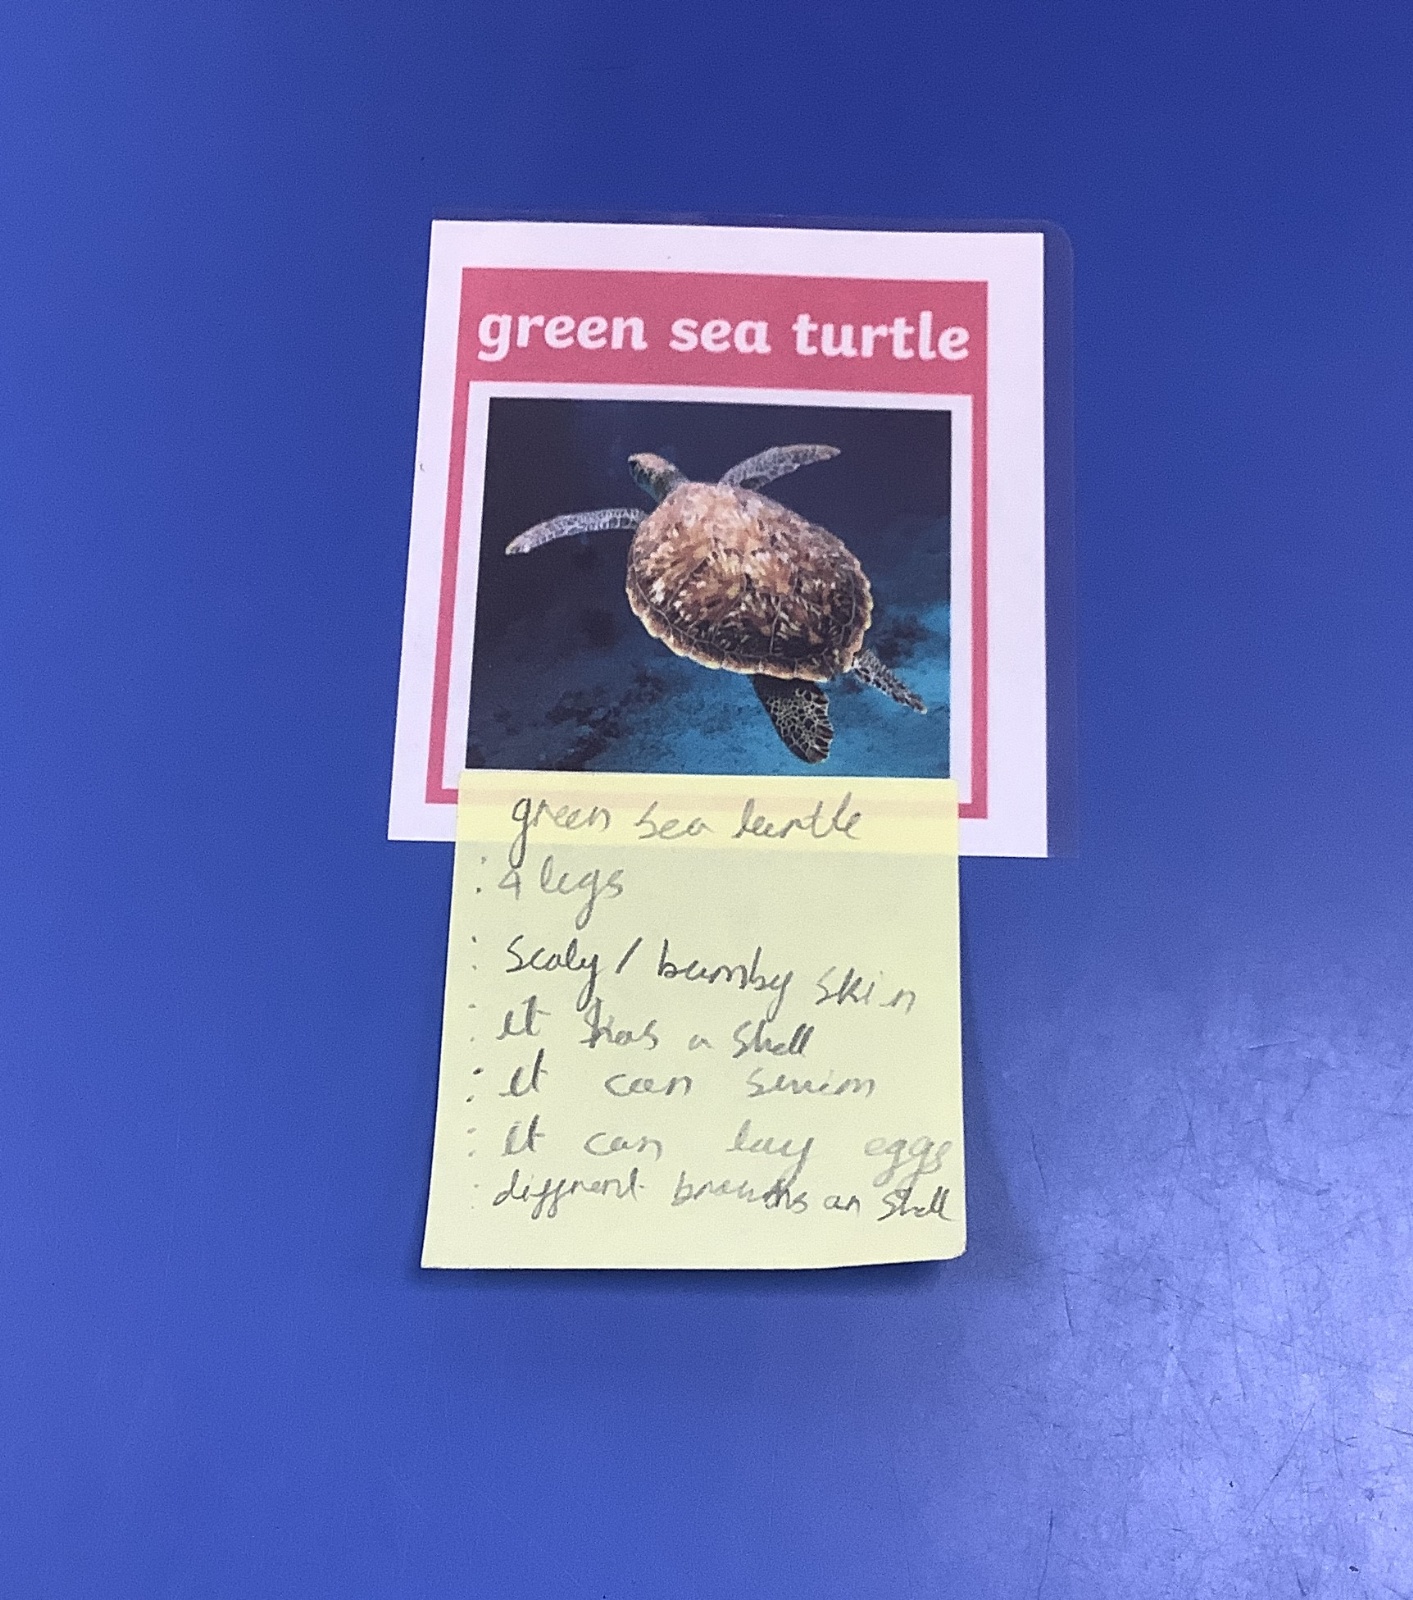 green sea turtle
green sea turtle
: 4 legs
: scaly / bumby skin
: it has a shell
: it can swim
: it can lay eggs
: diffrent browns on shell